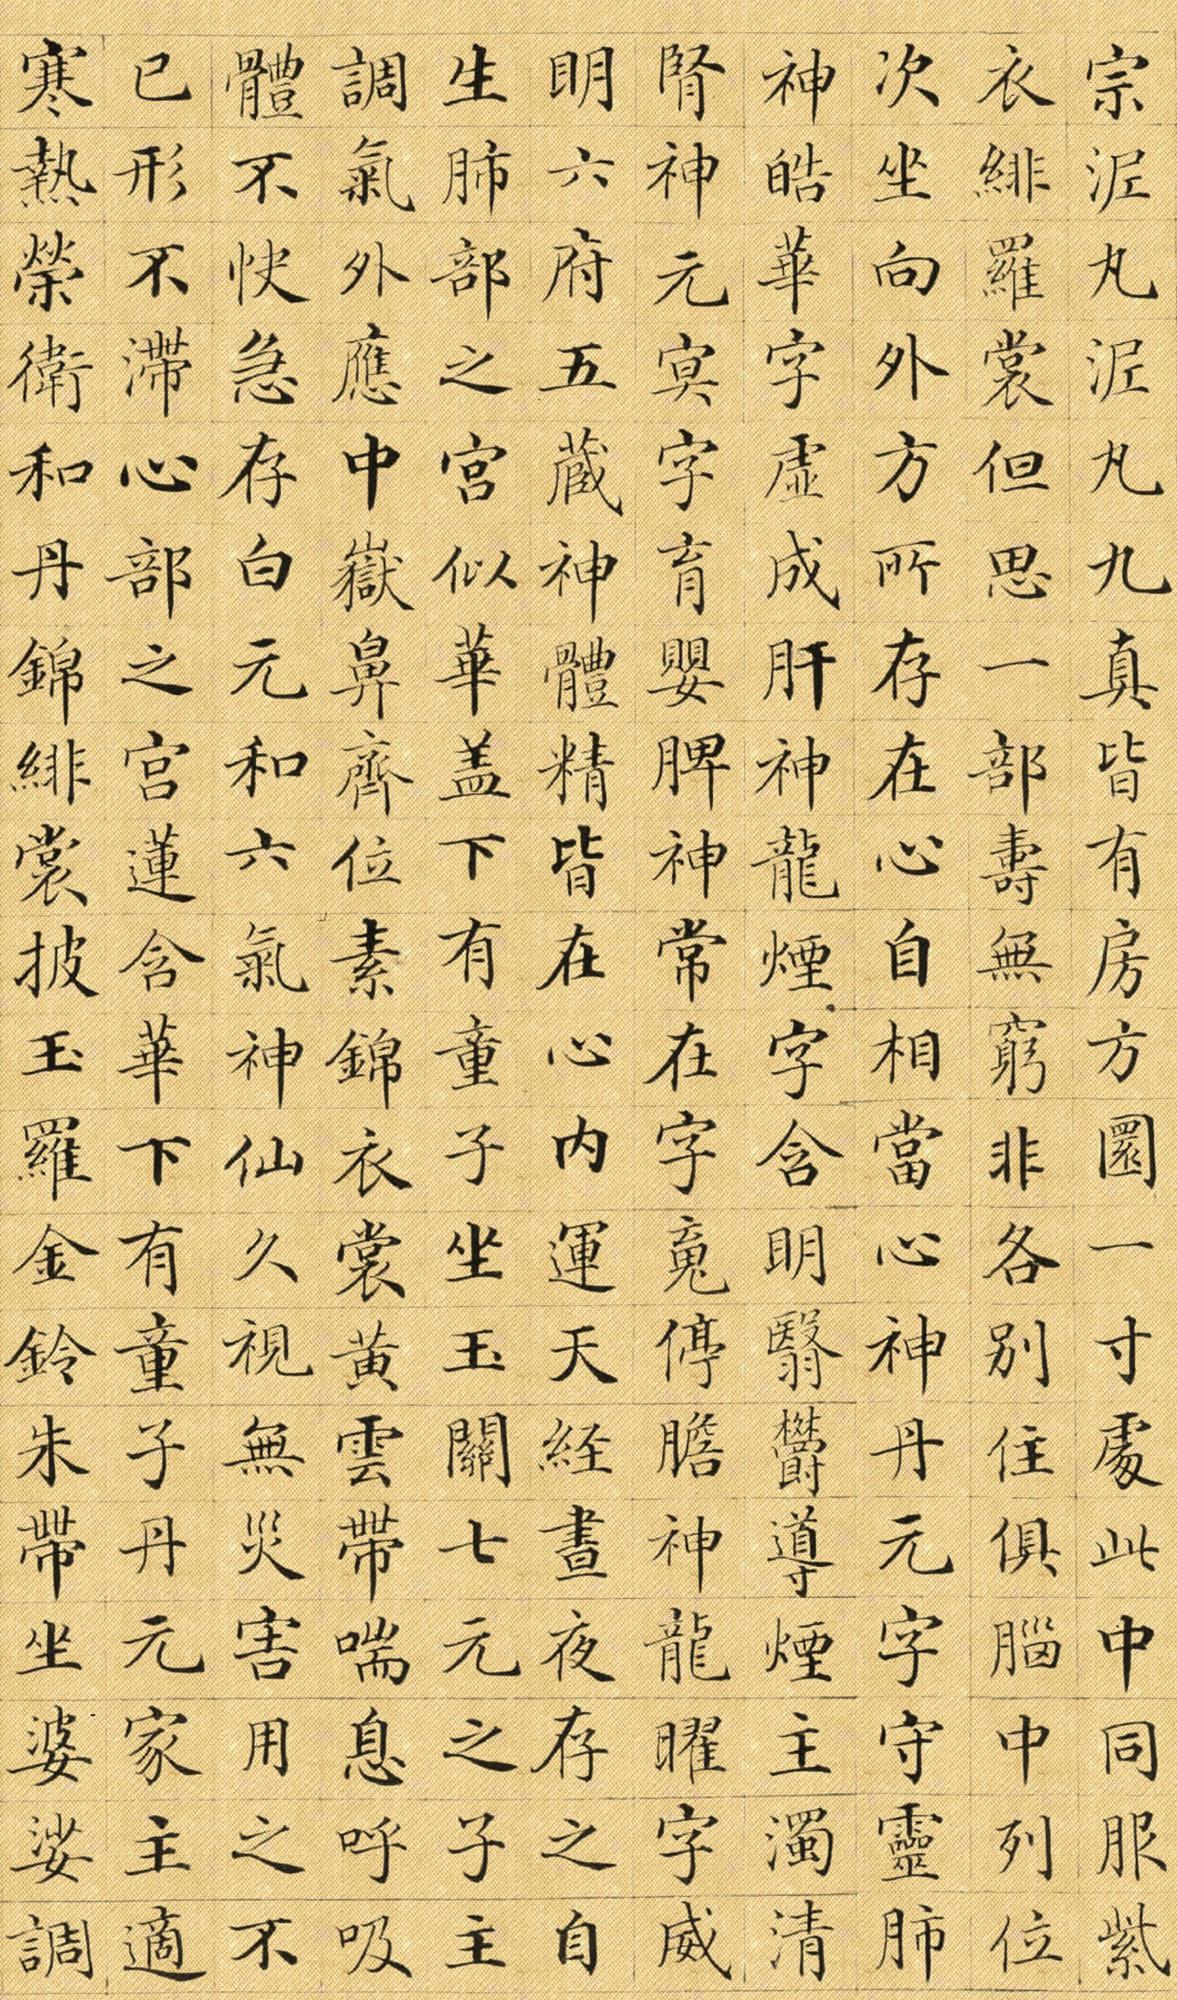 宗泥丸泥丸九真皆有房方圎一寸處此中同服紫
衣緋羅裳但思一部壽無窮非各別住俱腦中列位
次坐向外方所存在心自相當心神丹元字守靈肺
神皓華字虛成肝神龍煙字含明翳鬱導煙主濁清
腎神元冥字育嬰脾神常在字魂停膽神龍曜字威
明六府五藏神體精皆在心內運天経晝夜存之自
生肺部之宮似華盖下有童子坐玉關七元之子主
調氣外應中嶽鼻齊位素錦衣裳黃雲帶喘息呼吸
體不快急存白元和六氣神仙久視無災害用之不
已形不滯心部之宮蓮含華下有童子丹元家主適
寒熱榮衛和丹錦緋裳披玉羅金鈴朱帶坐婆娑調